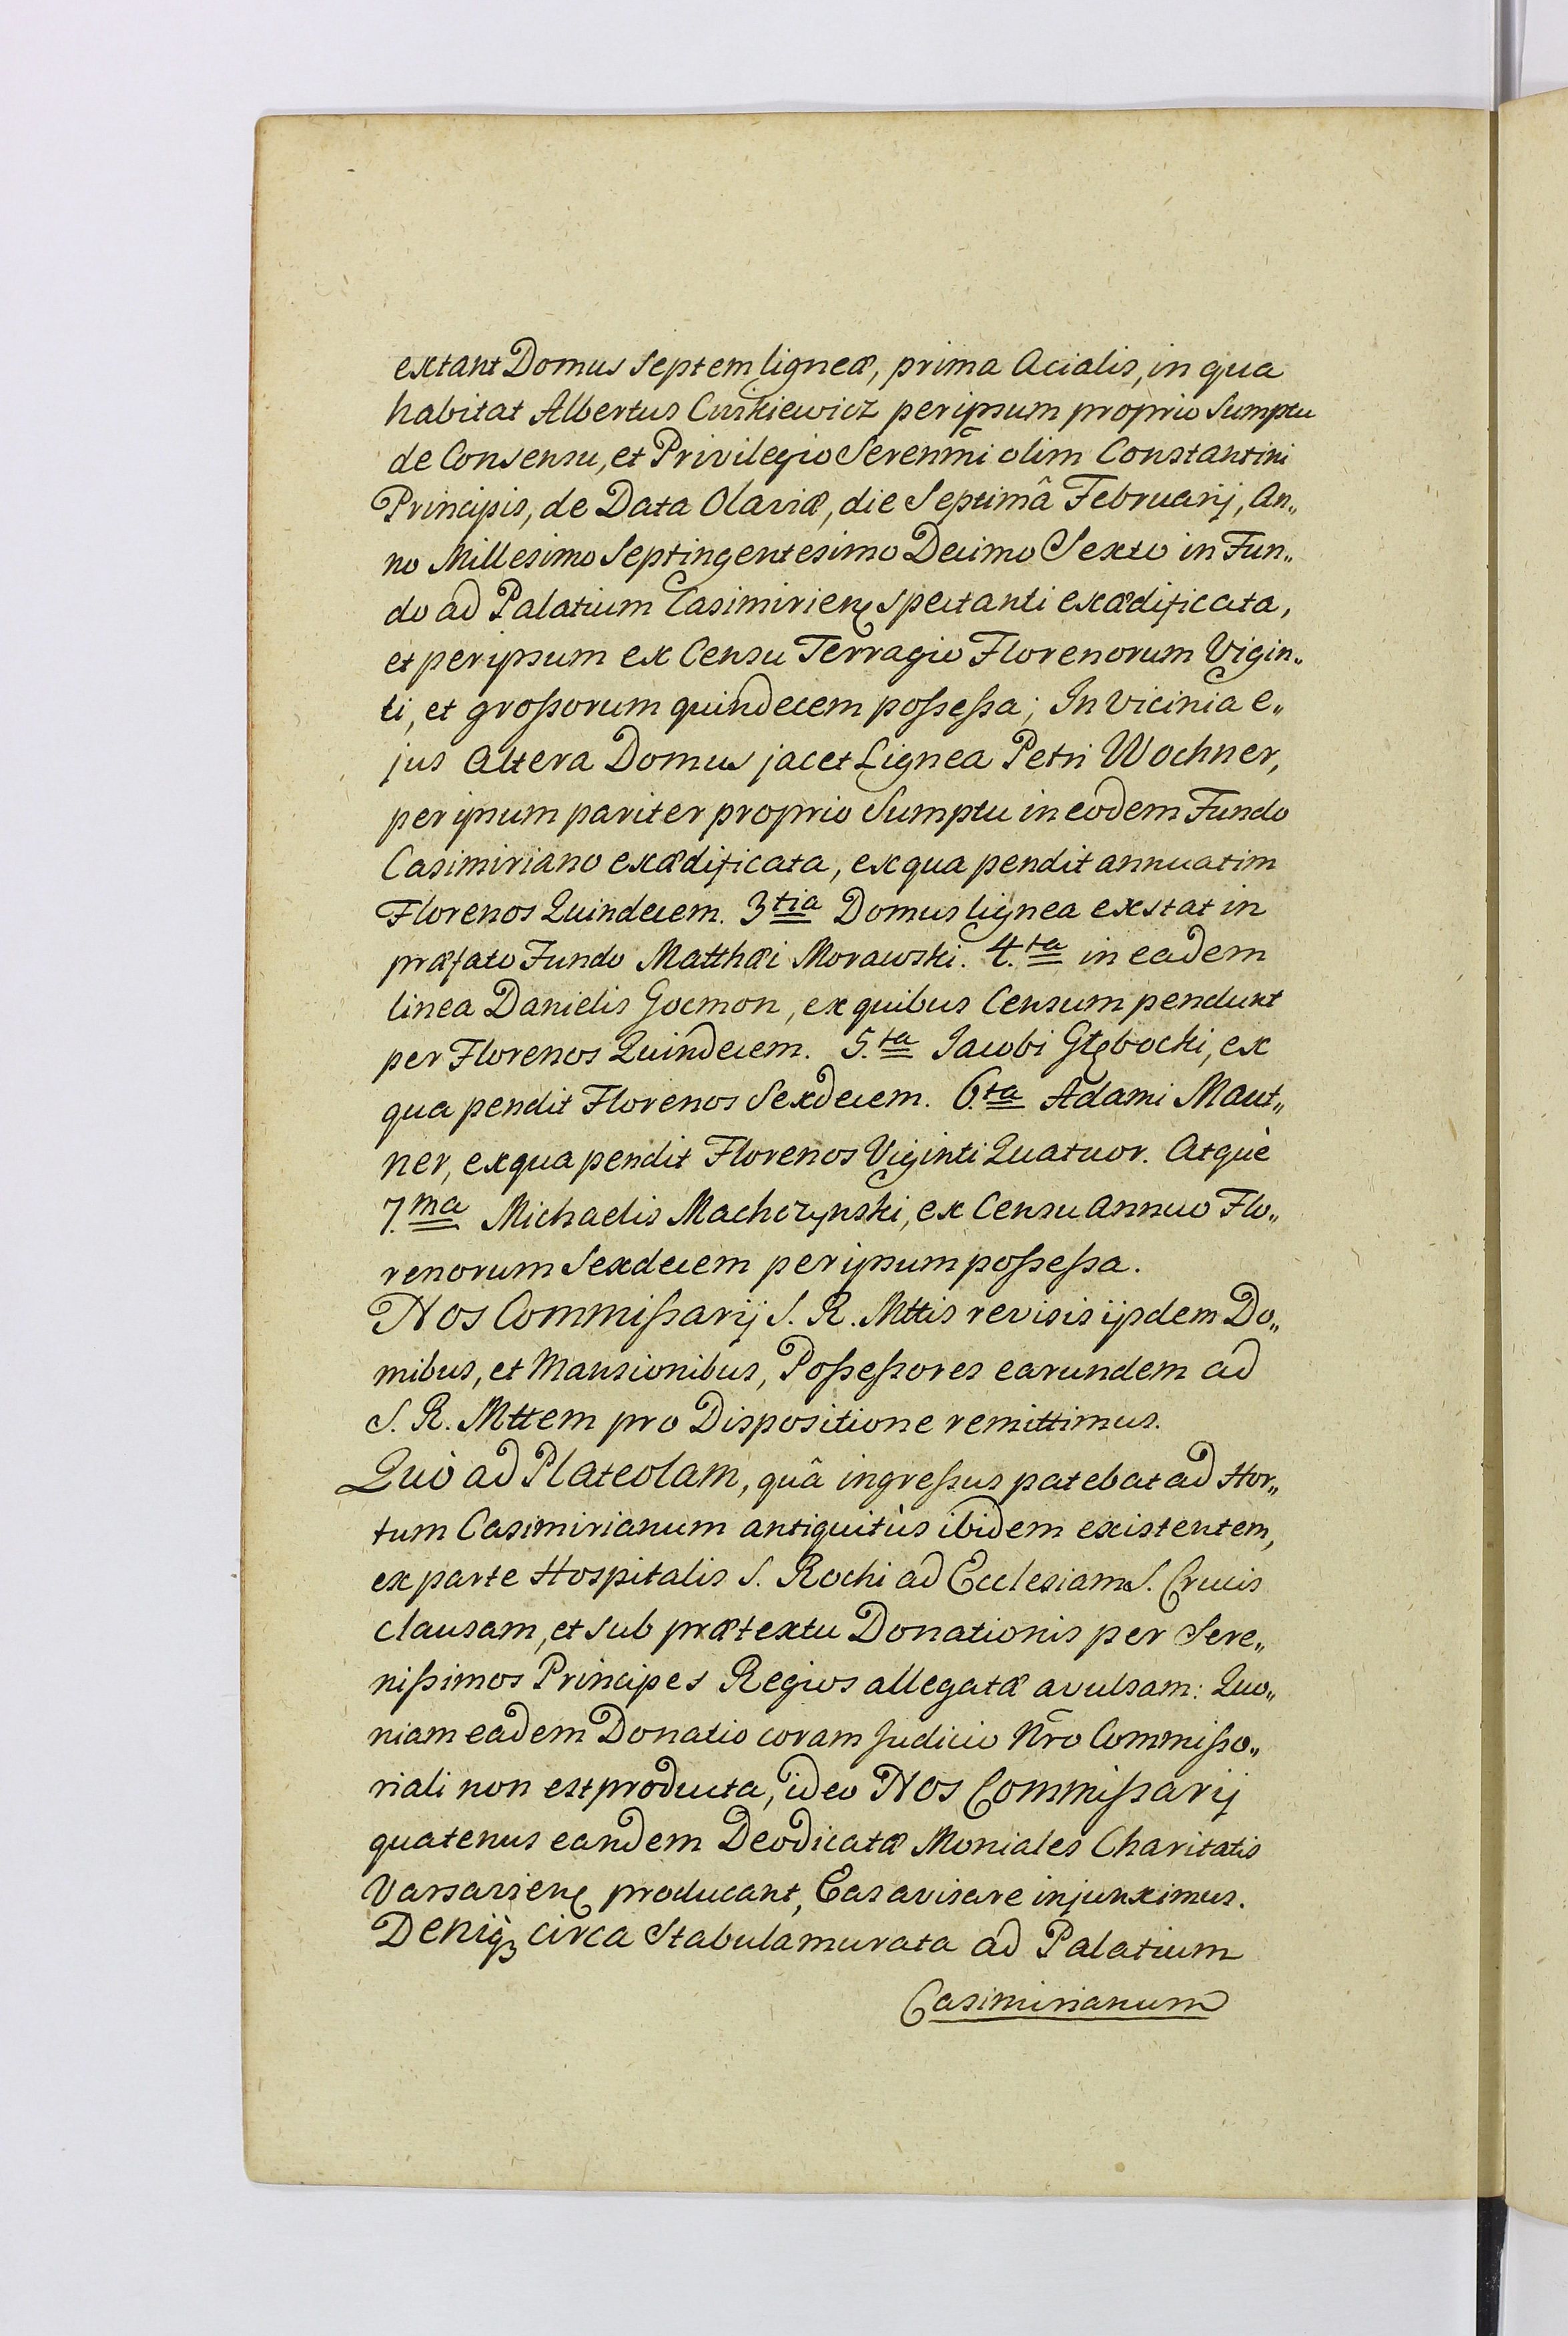 extant Domus septem ligneæ, prima Acialis, in qua
habitat Albertus Curskiewicz per ipsum proprio Sumptu
de Consensu, et Privilegio Serenm̄i olim Constantini
Principis, de Data Olaviæ, die Septimâ Februarij, An„
no Millesimo Septingentesimo Decimo Sexto in Fun„
do ad Palatium Casimirienẽ spectanti exædificata,
et per ipsum ex Censu Terragio Florenorum Vigin„
ti, et großorum quindecem poßeßa; In vicinia e„
jus Altera Domus jacet Lignea Petri Wochner,
per ipsum pariter proprio Sumptu in eodem Fundo
Casimiriano exædificata, ex qua pendit annuatim
Florenos Quindecem. 3tia Domus lignea exstat in
præfato Fundo Matthæi Morawski. 4.ta in eadem
linea Danielis Gocmon, ex quibus Censum pendunt
per Florenos Quindecem. 5.ta Jacobi Głębocki, ex
qua pendit Florenos Sexdecem. 6.ta Adami Maut„
ner, ex qua pendit Florenos Viginti Quatuor. Atquè
7.ma Michaelis Machczynski, ex Censu Annuo Flo„
renorum Sexdecem per ipsum poßeßa.
Nos Commißarij S. R. Mttis revisis ijsdem Do„
mibus, et Mansionibus, Poßeßores earundem ad
S. R. Mttem pro Dispositione remittimus.
Quò ad Plateolam, quâ ingreßus patebat ad Hor„
tum Casimirianum antiquitùs ibidem existentem,
ex parte Hospitalis S. Rochi ad Ecclesiam S. Crucis
clausam, et sub prætextu Donationis per Sere„
nißimos Principes Regios allegatæ avulsam: Quo„
niam eadem Donatio coram Judicio Nr̄o Commißo„
riali non est producta, ideo Nos Commißarij
quatenus eandem Deodicatæ Moniales Charitatis
Varsavienẽ producant, Eas avisare injunximus.
Deniq̀ꝫ circa Stabula murata ad Palatium
Casimirianum